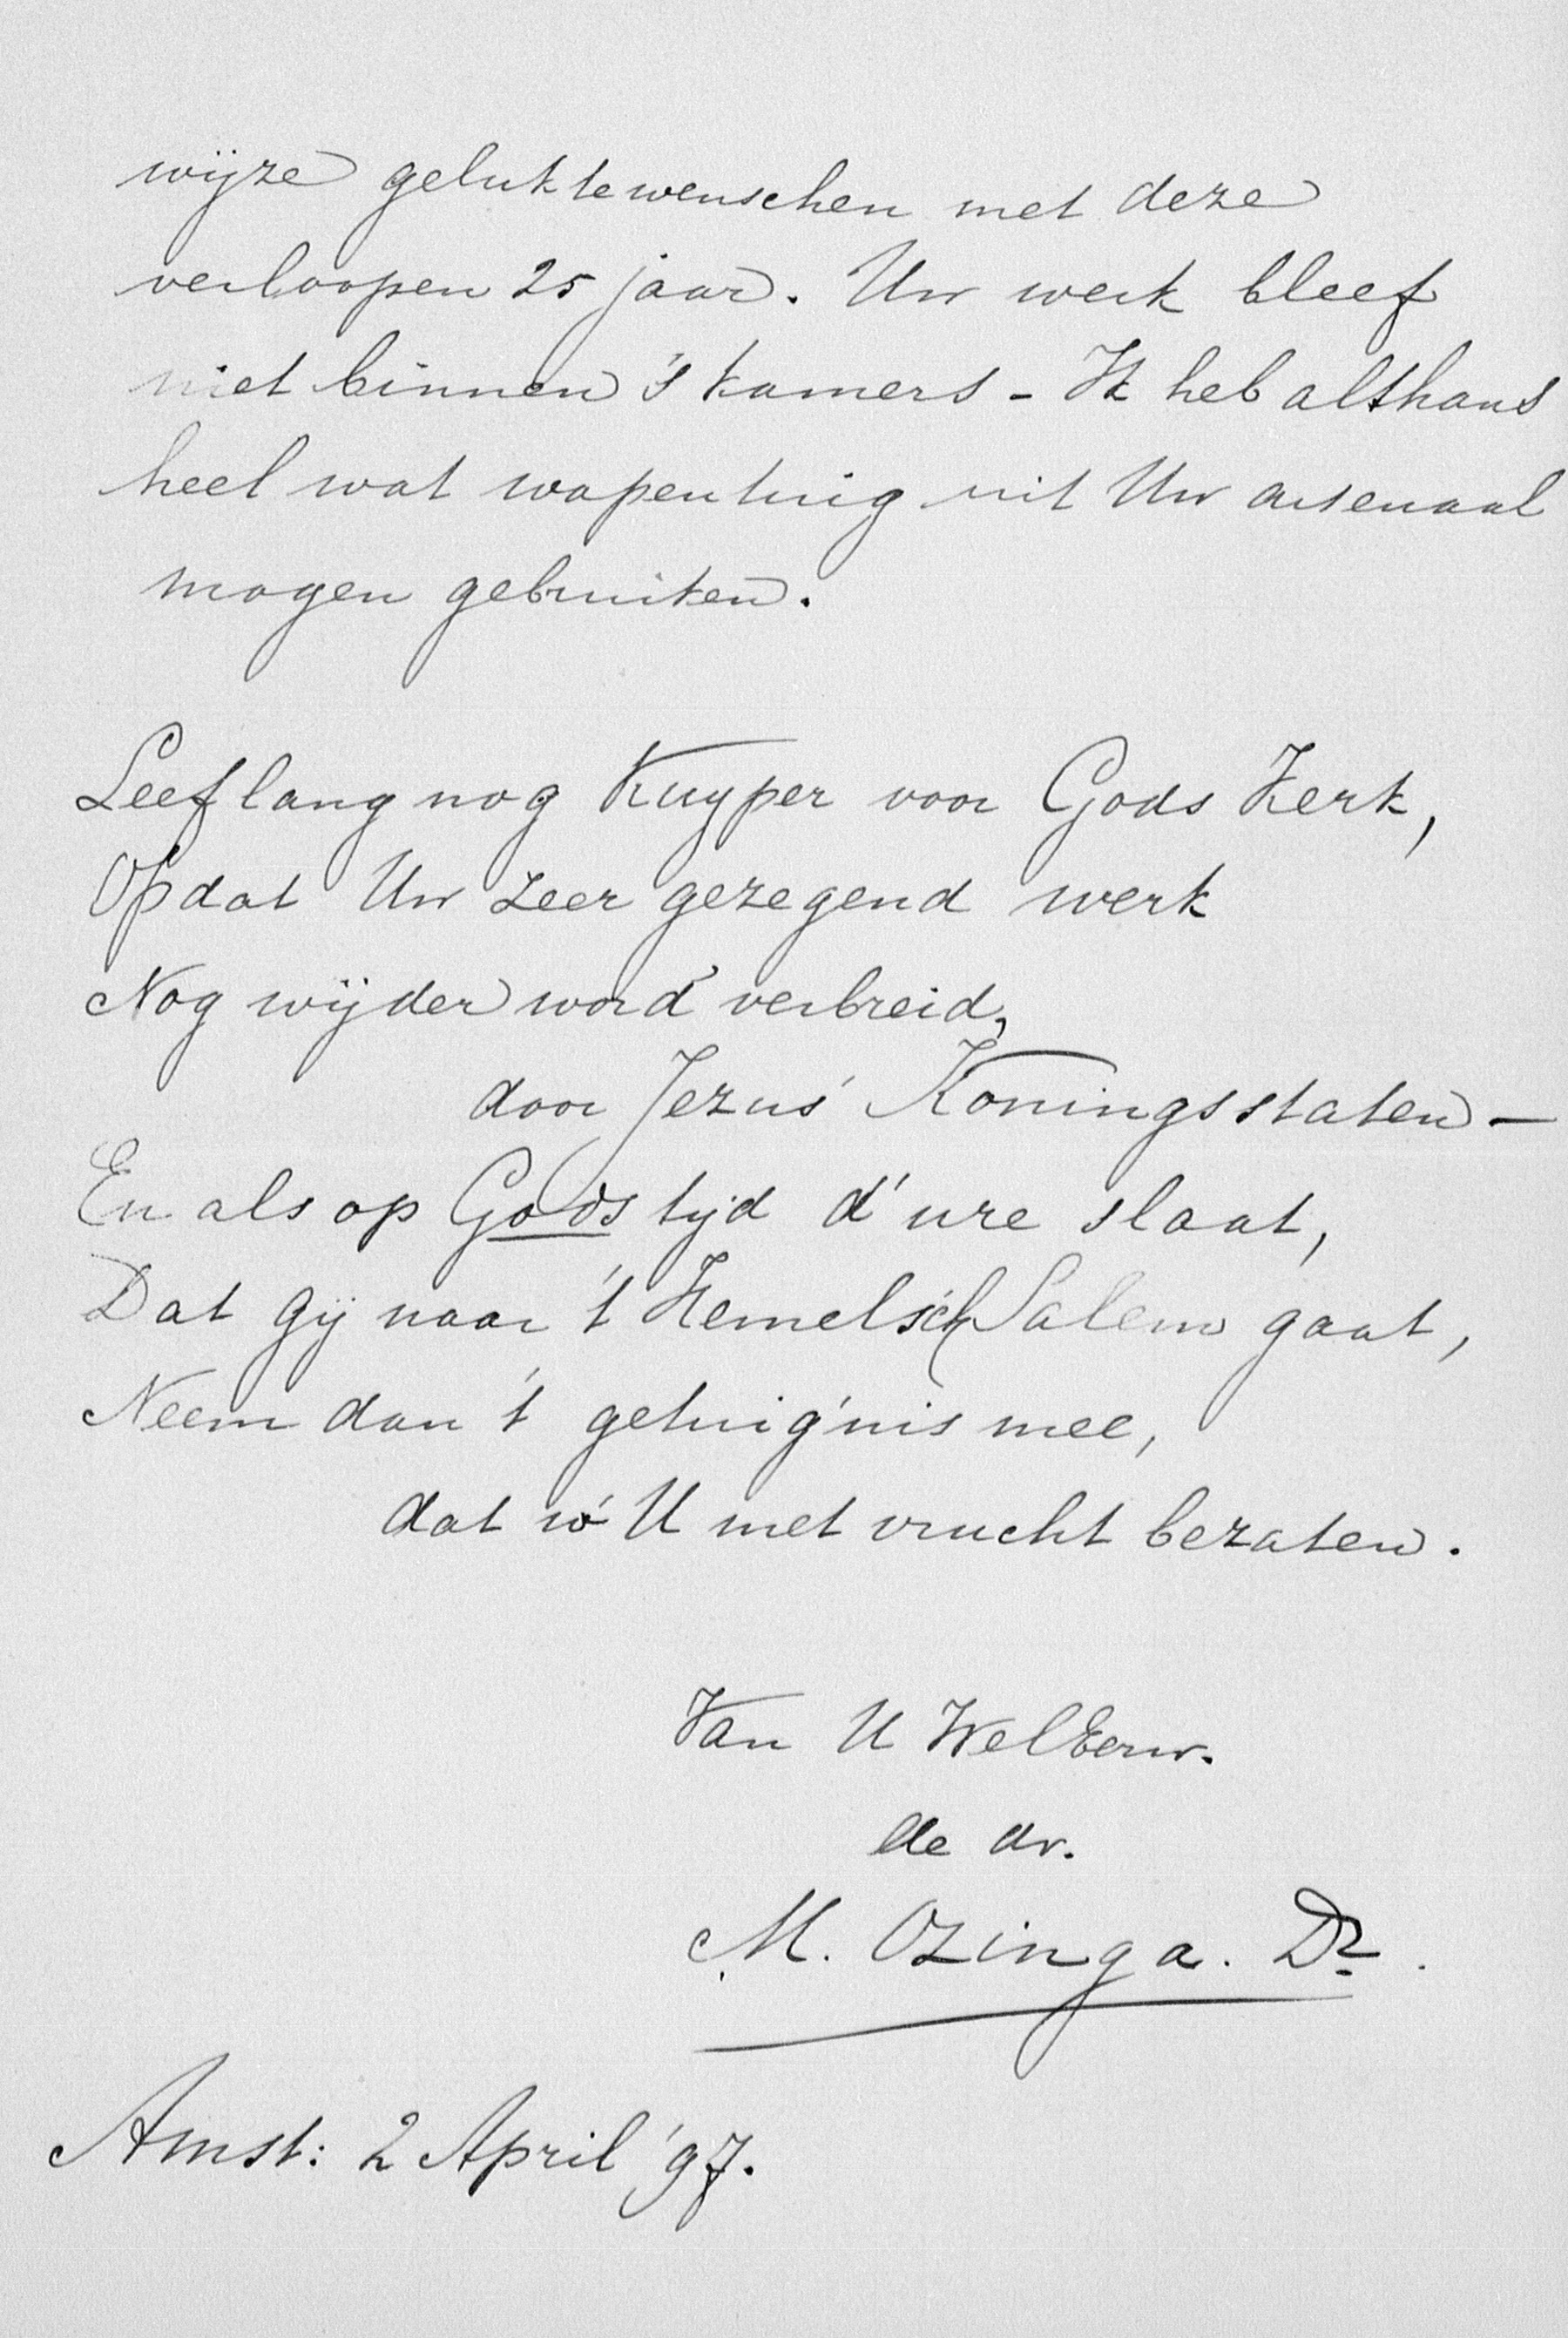 wijze geluk te wenschen met deze
verloopen 25 jaar. Uw werk bleef
niet binnen 's kamers - Ik heb althans
heel wat wapentuig uit Uw arsenaal
mogen gebruiken.
Leef lang nog Kuyper voor Gods Kerk,
Opdat Uw zeer gezegend werk
Nog wijder word' verbreid,
door Jezus' Koningsstaten —
En als op Gods tijd d' ure slaat,
Dat gij naar 't Hemelsch Salem gaat,
Neem dan 't getuig'nis mee,
dat w' U met vrucht bezaten.
Van U WelEerw.
de dr.
M. Ozinga. Dz.
Amst: 2 April '97.